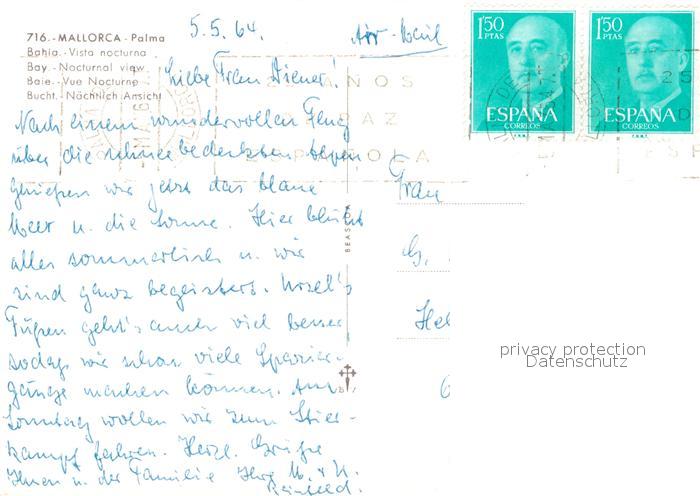 5.5.64.
Air-Mail
716.-MALLORCA-Palma
Bahía.-Vista nocturna
Bay.-Nocturnal view
Baie.-Vue Nocturne
Bucht.-Nächtlich Ansicht
1'50 PTAS
ESPAÑA
CORREOS
F.N.M.T.
1'50 PTAS
ESPAÑA
CORREOS
F.N.M.T.
25 AÑOS
PAZ
ESPAÑOLA
Liebe Frau Diener!
Nach einem wundervollen Flug
über die schneebedeckten Alpen
genießen wir jetzt das blaue
Meer u. die Sonne. Hier blüht
alles sommerlich u. wir
sind ganz begeistert. Ursel's
Füßen geht's auch viel besser
sodaß wir schon viele Spazier-
gänge machen können. Am
Sonntag wollen wir zum Stier-
kampf fahren. Herzl. Grüße
Ihnen u. der Familie Ihre M. + U.
Frau
G.
Hel
BEASCOA
privacy protection
Datenschutz